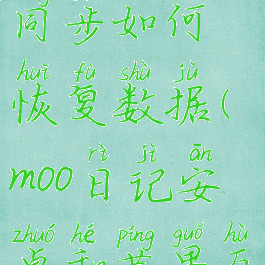 同步如何
huī fù shù jù
恢复数据(
rì jì ān
moo日记安
zhuó hé píng guǒ hù
卓和苹果互